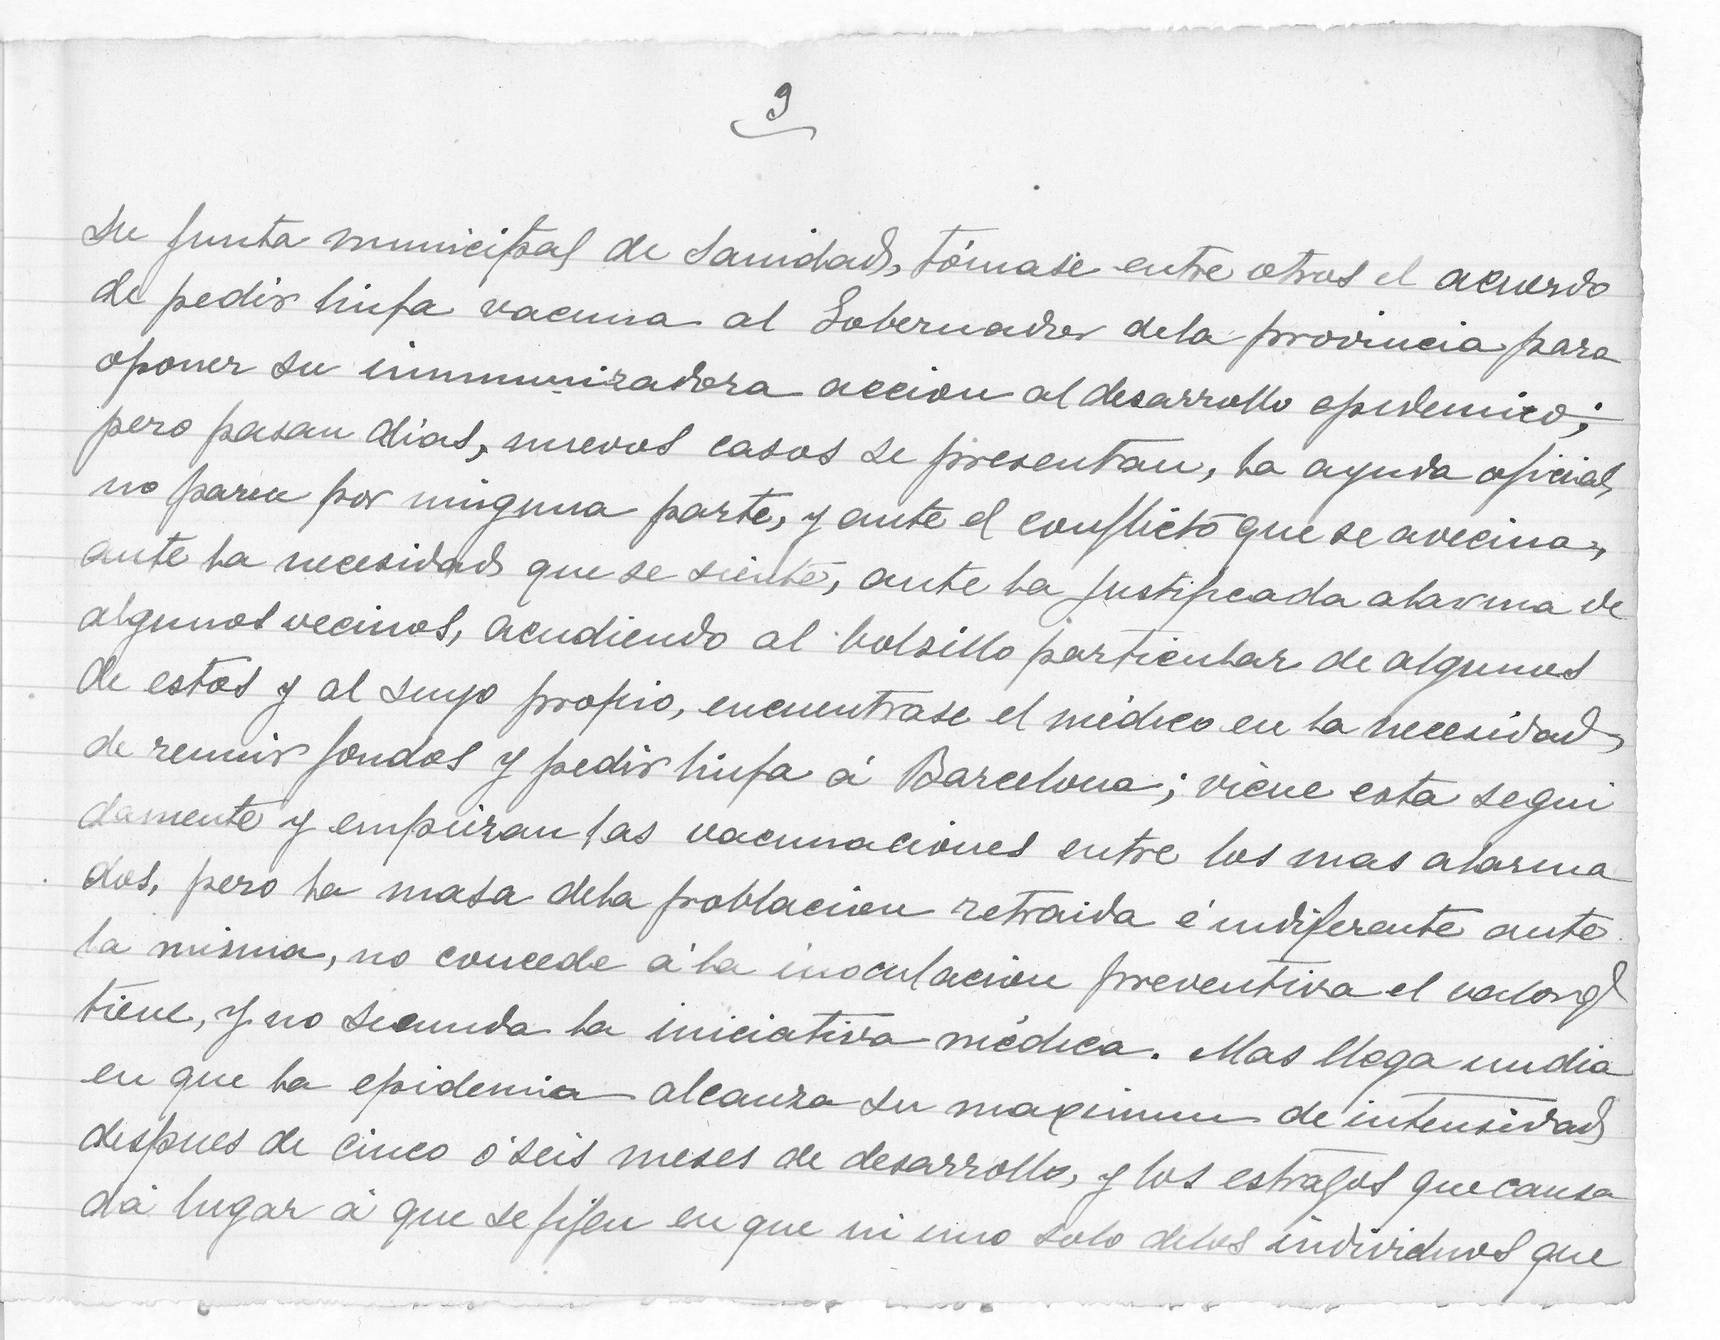 9
su junta municipal de Sanidad, tómase entre otros el acuerdo
de pedir linfa vacuna al Gobernador dela provincia para
oponer su inmunizadora accion al desarrollo epidemico;
pero pasan dias, nuevos casos se presentan, la ayuda oficial
no parece por ninguna parte, y ante el conflicto que se avecina,
ante la necesidad que se siente, ante la justificada alarma de
algunos vecinos, acudiendo al bolsillo particular de algunos
de estos y al suyo propio, encuentrase el médico en la necesidad
de reunir fondos y pedir linfa á Barcelona; viene esta segui
damente y empiezan las vacunaciones entre los mas alarma
dos, pero la masa dela problacion retraida é indiferente ante
la misma, no concede á la inoculacion preventiva el valor q
tiene, y no secunda la iniciativa médica. Mas llega un dia
en que la epidemia alcanza su maximum de intensidad
despues de cinco ó seis meses de desarrollo, y los estragos que causa
dá lugar á que se fijen en que ni uno solo delos individuos que